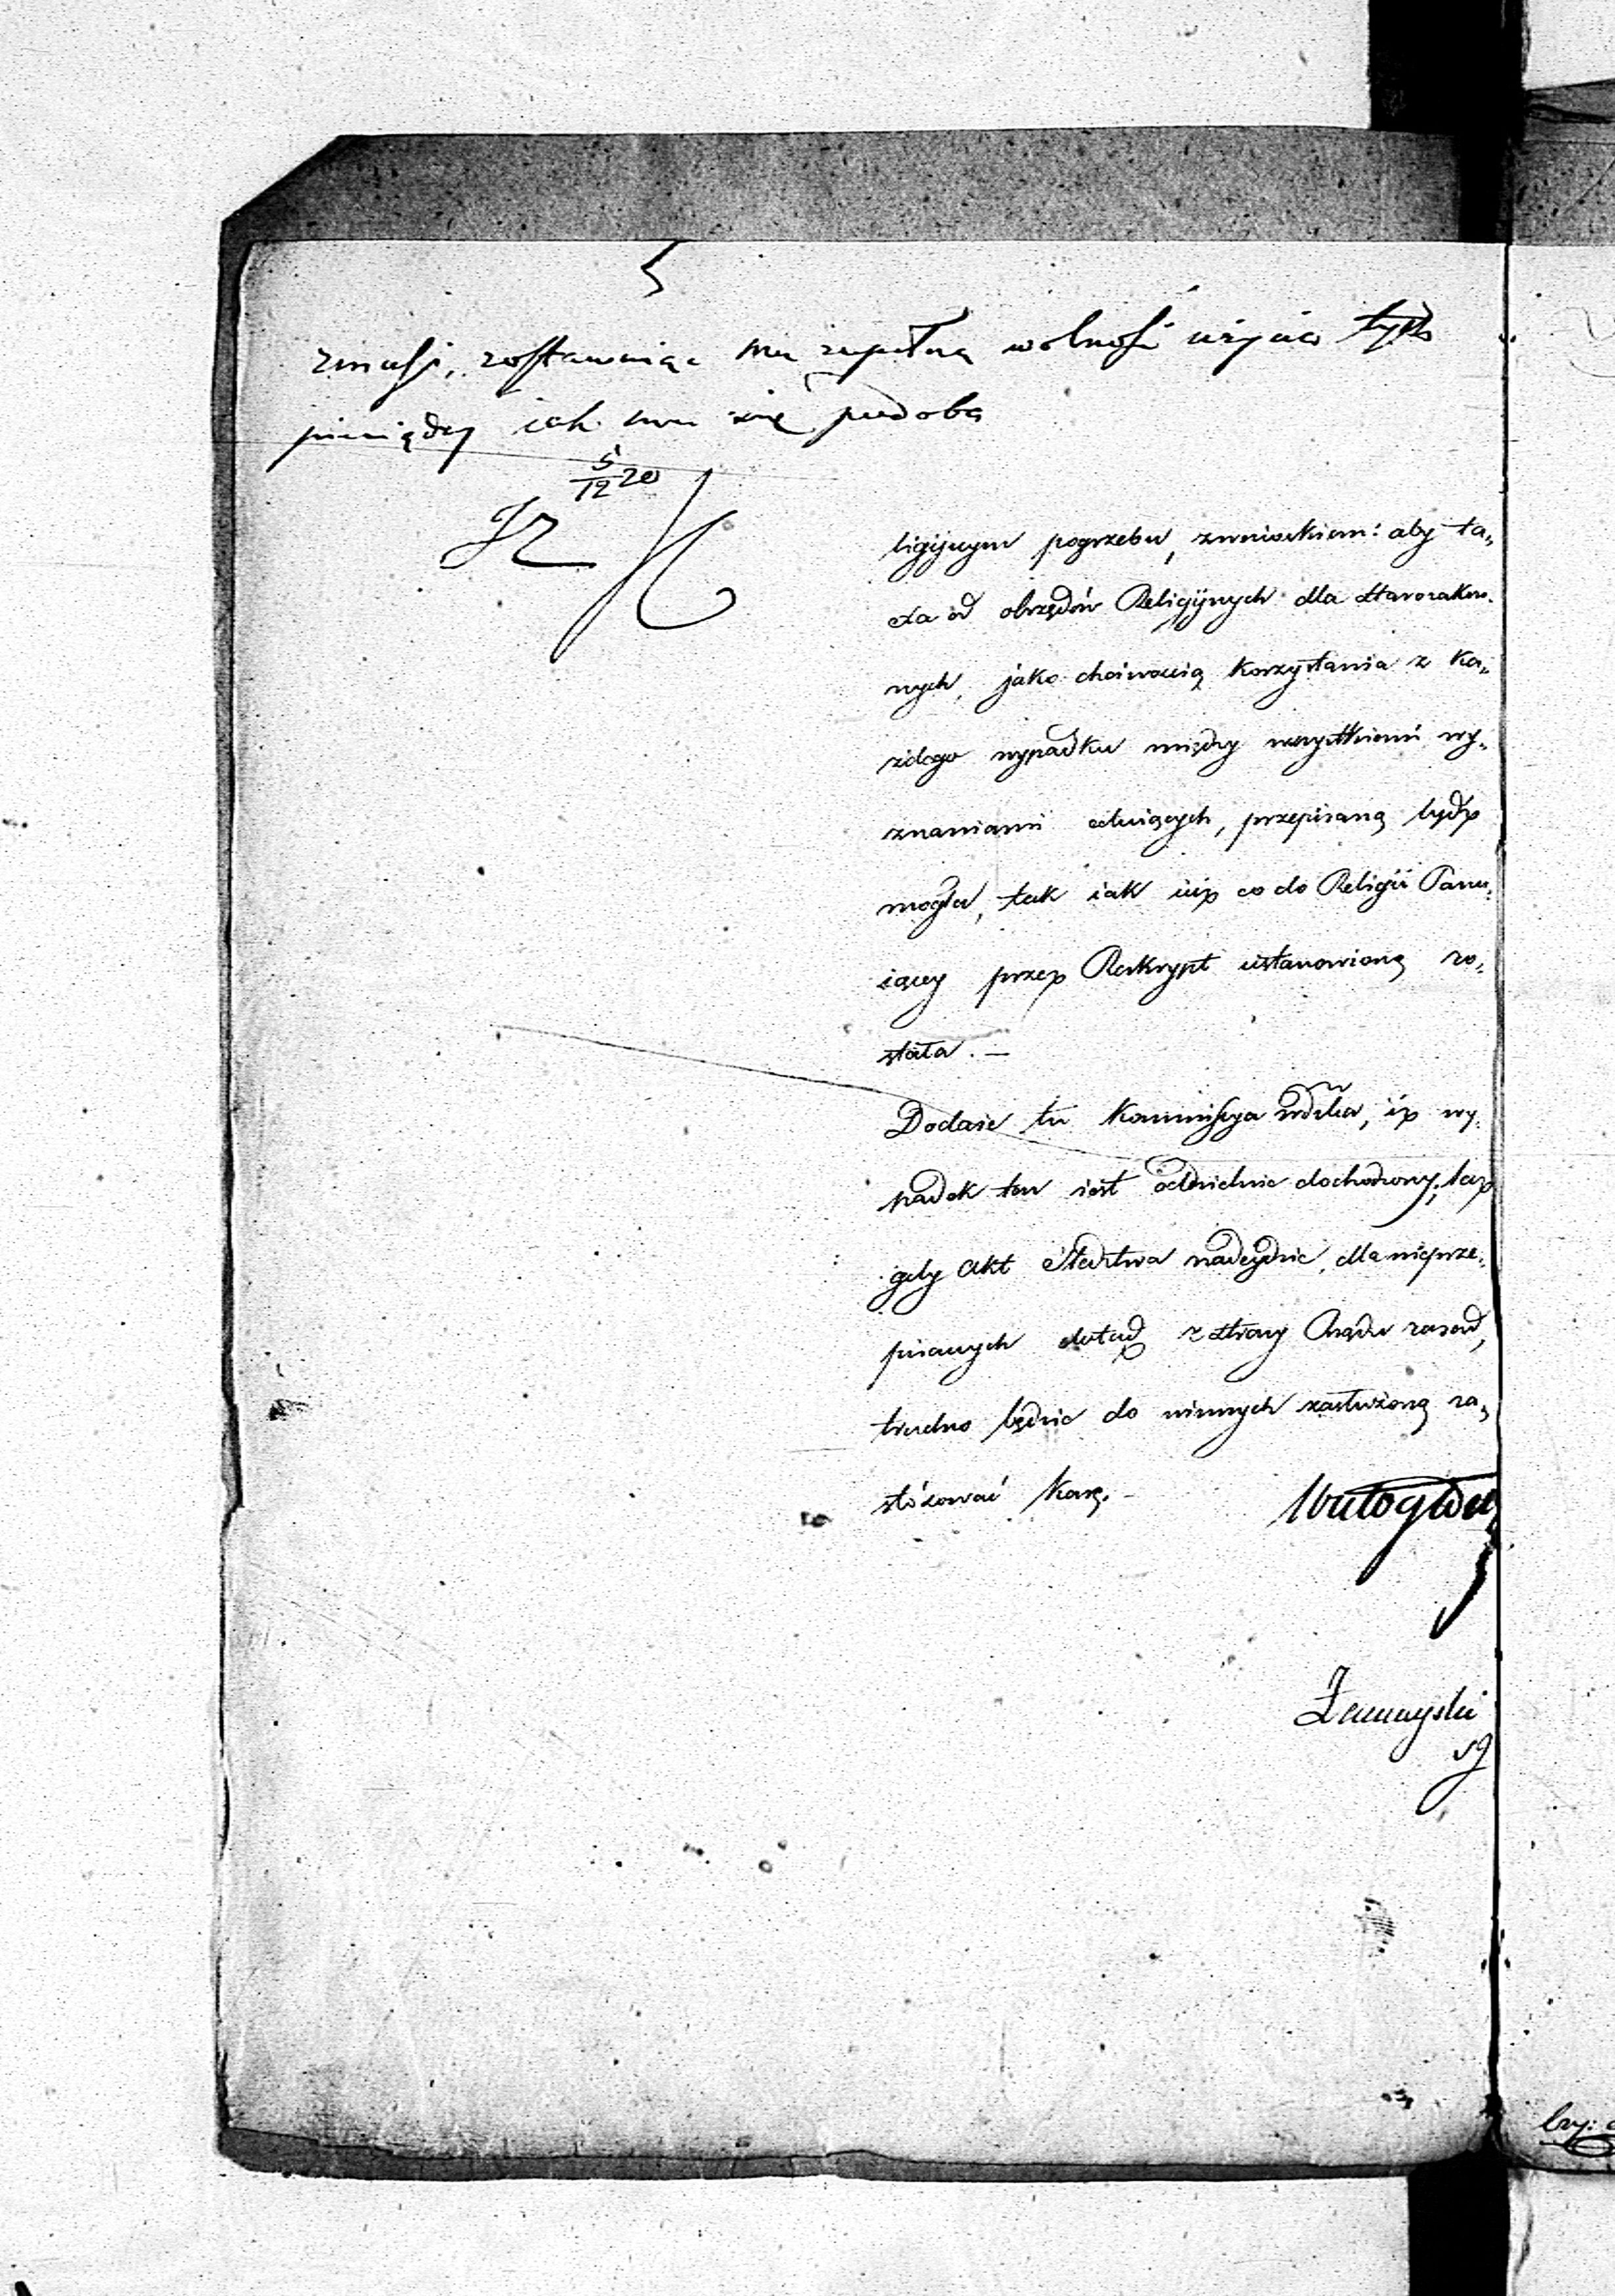 zmusić, zostawuiąc mu zupełną wolność użycia tych
pieniędzy iak mu się podoba
5/12 20
ligijnym pogrzebu, z wnioskiem: aby ta„
xa od obrzędów Religijnych dla Starozakon„
nych, jako chciwością korzystania z ka„
żdego wypadku między wszystkiemi wy„
znaniami celuiących, przepisaną bydź
mogła, tak iak iuż co do Religii Panu„
iącey przez Reskrypt ustanowioną zo„
stała. —
Dodaie tu Kommissya Wdzka, iż wy„
padek ten iest oddzielnie dochodzony, lecz
gdy Akt Śledztwa nadeydzie, dla nieprze„
pisanych dotąd z strony Rządu zasad,
trudno będzie do winnych zasłużoną za„
stósować karę. —